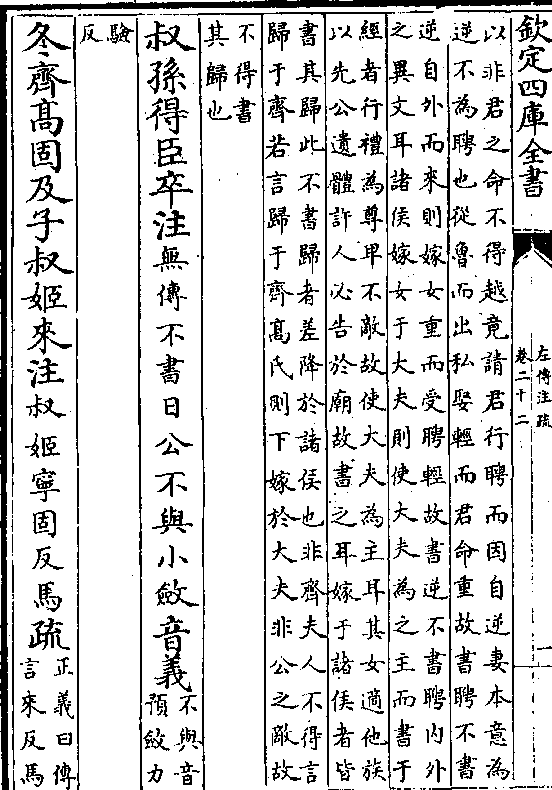 欽定四庫全書
左傳注疏
卷二十二
一
以非君之命不得越竟請君行聘而因自逆妻本意為
逆不為聘也從魯而出私娶輕而君命重故書聘不書
逆自外而來則嫁女重而受聘輕故書逆不書聘内外
之異文耳諸侯嫁女于大夫則使大夫為之主而書于
經者行禮為尊卑不敵故使大夫為主耳其女適他族
以先公遺體許人必告於廟故書之耳嫁于諸侯者皆
書其歸此不書歸者差降於諸侯也非齊夫人不得言
歸于齊若言歸于齊髙氏則下嫁於大夫非公之敵故
不得書
其歸也
叔孫得臣卒注無傳不書日公不與小斂音義
不與音
預斂力
驗
反
冬齊髙固及子叔姬來注叔姬寧固反馬疏
正義曰傳
言來反馬